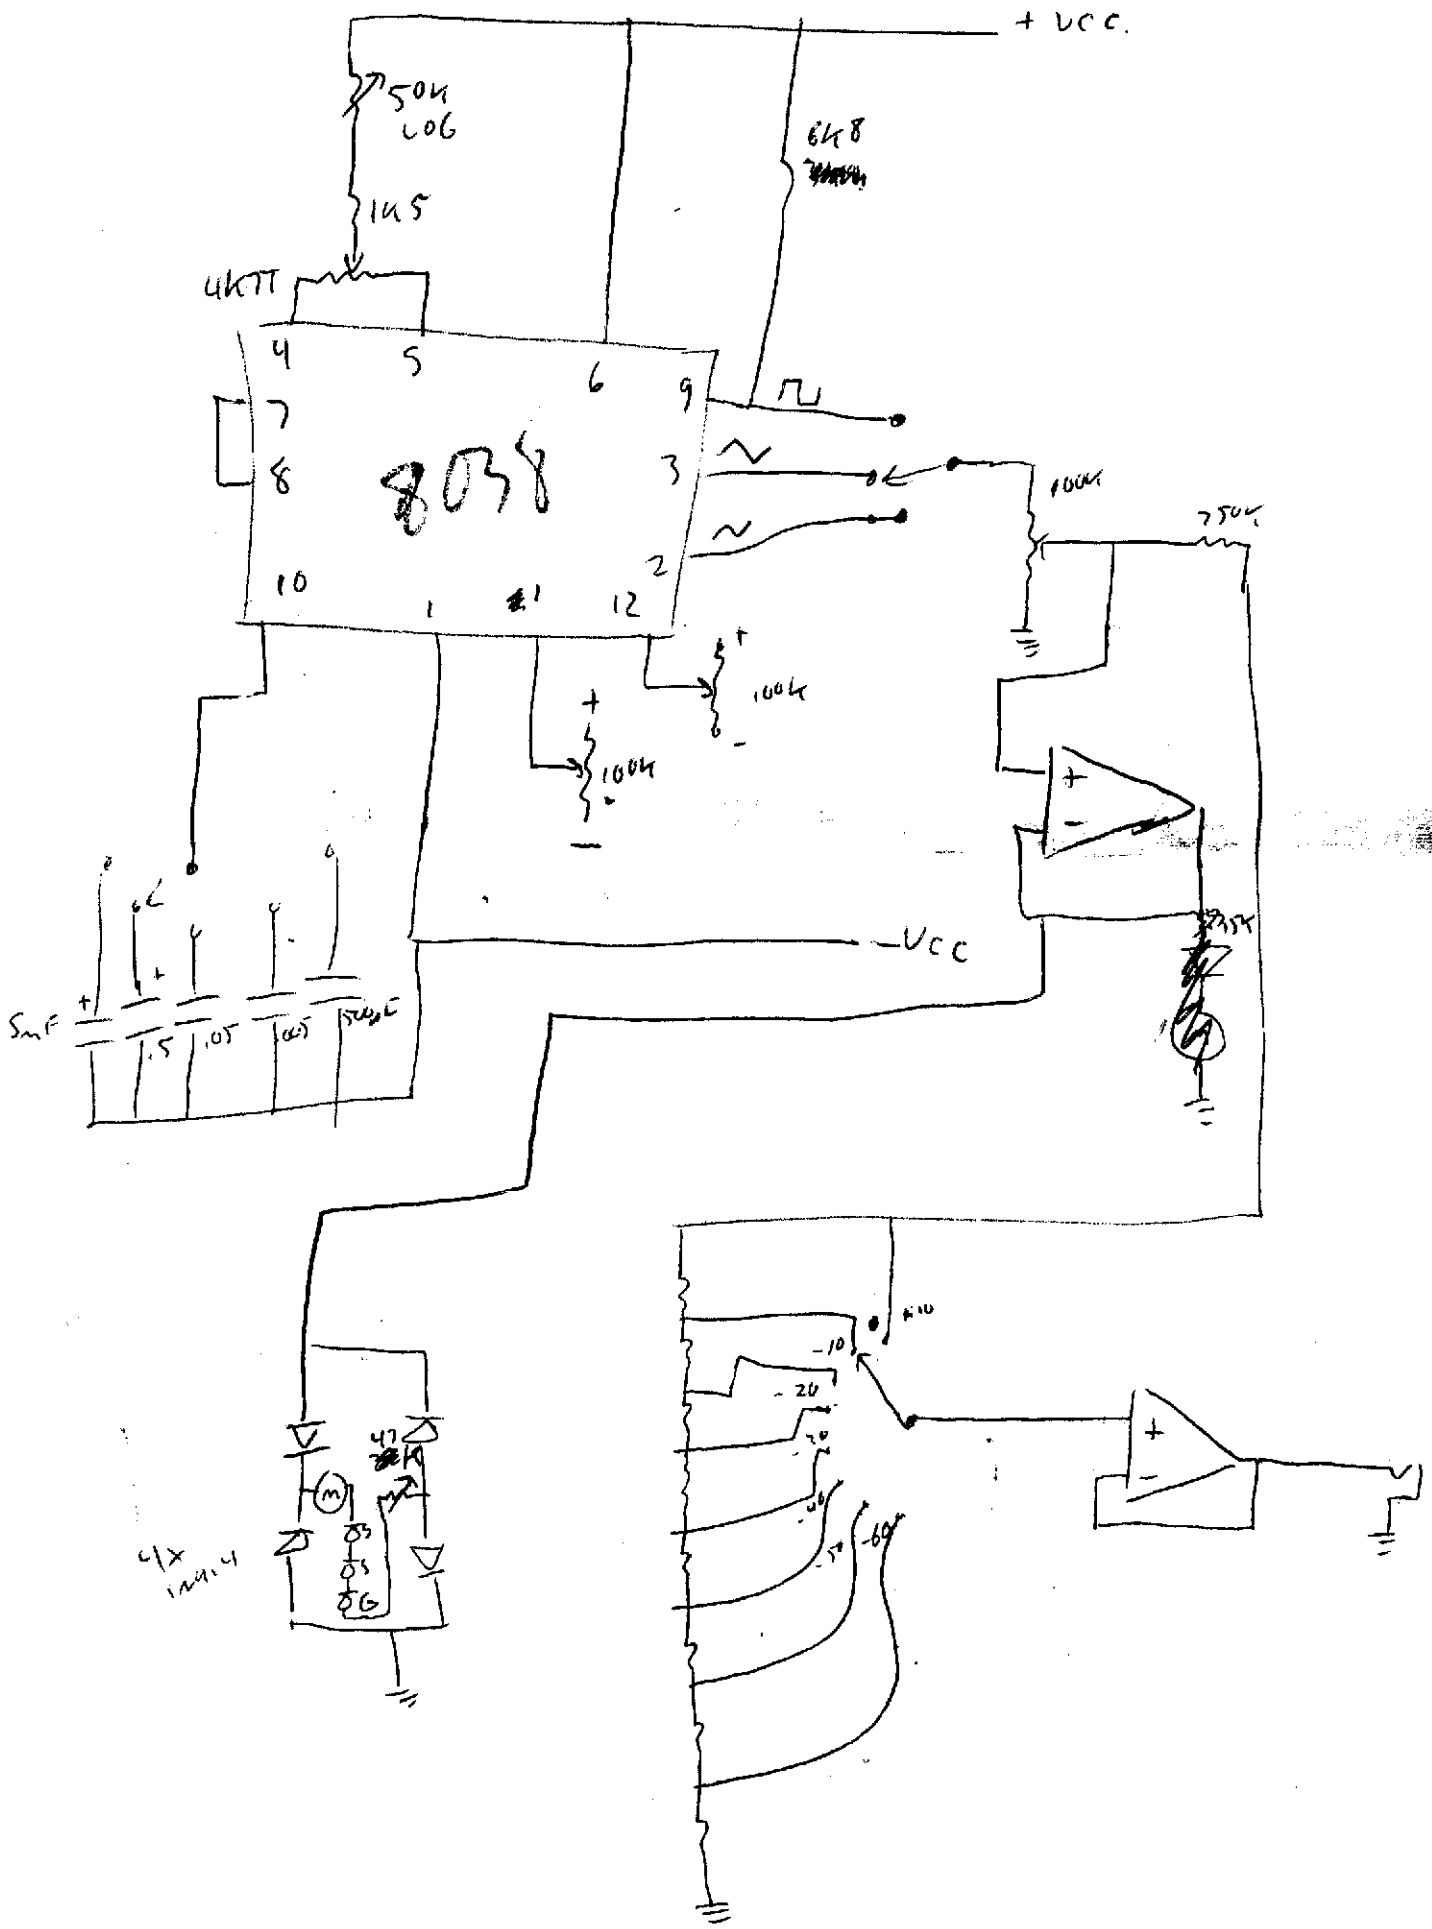 + VCC.
50K
LOG
6K8
1K5
4K7T
4 5 6 9
7
8 8038 3
2
10 1 11 12
100K
750K
+
100K
-
+
100K
-
+
-
-VCC
+ +
5mF .5 .05 .005 500pF
+10
-10
-20
-30
-40
-50 -60
47
K
M
S
S
G
4X
+
-